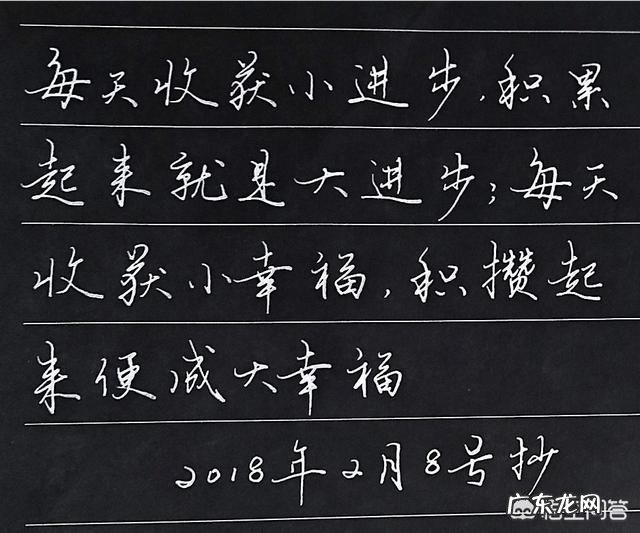 每天收获小进步,积累
起来就是大进步;每天
收获小幸福,积攒起
来便成大幸福
2018年2月8号抄
广东龙网
悟空问答